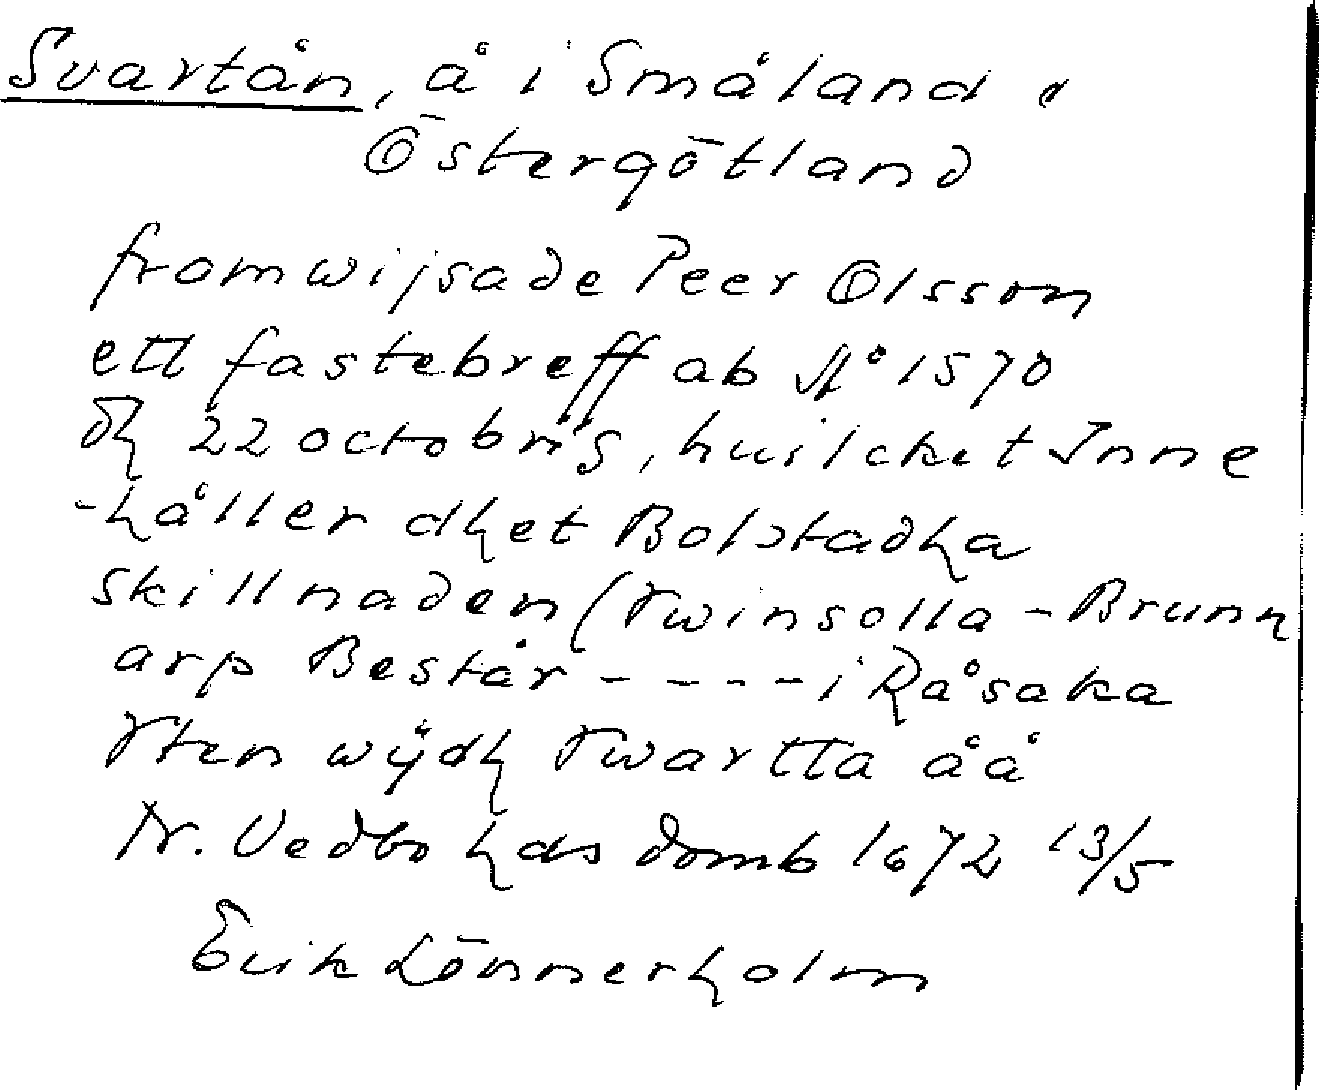 Svartån, å i Småland o
Östergötland
framwijsade Peer Olsson
ett fastebreff ab Aº 1570
dh 22 octobris, huilcket Inne
-håller dhet Bolstadha
skillnaden (Twinsolla - Brunn
arp Består - - - - i Råsaka
Sten wÿdh Swartta åå
N. Vedbo hds domb 1672 13/5
Erik Lönnerholm